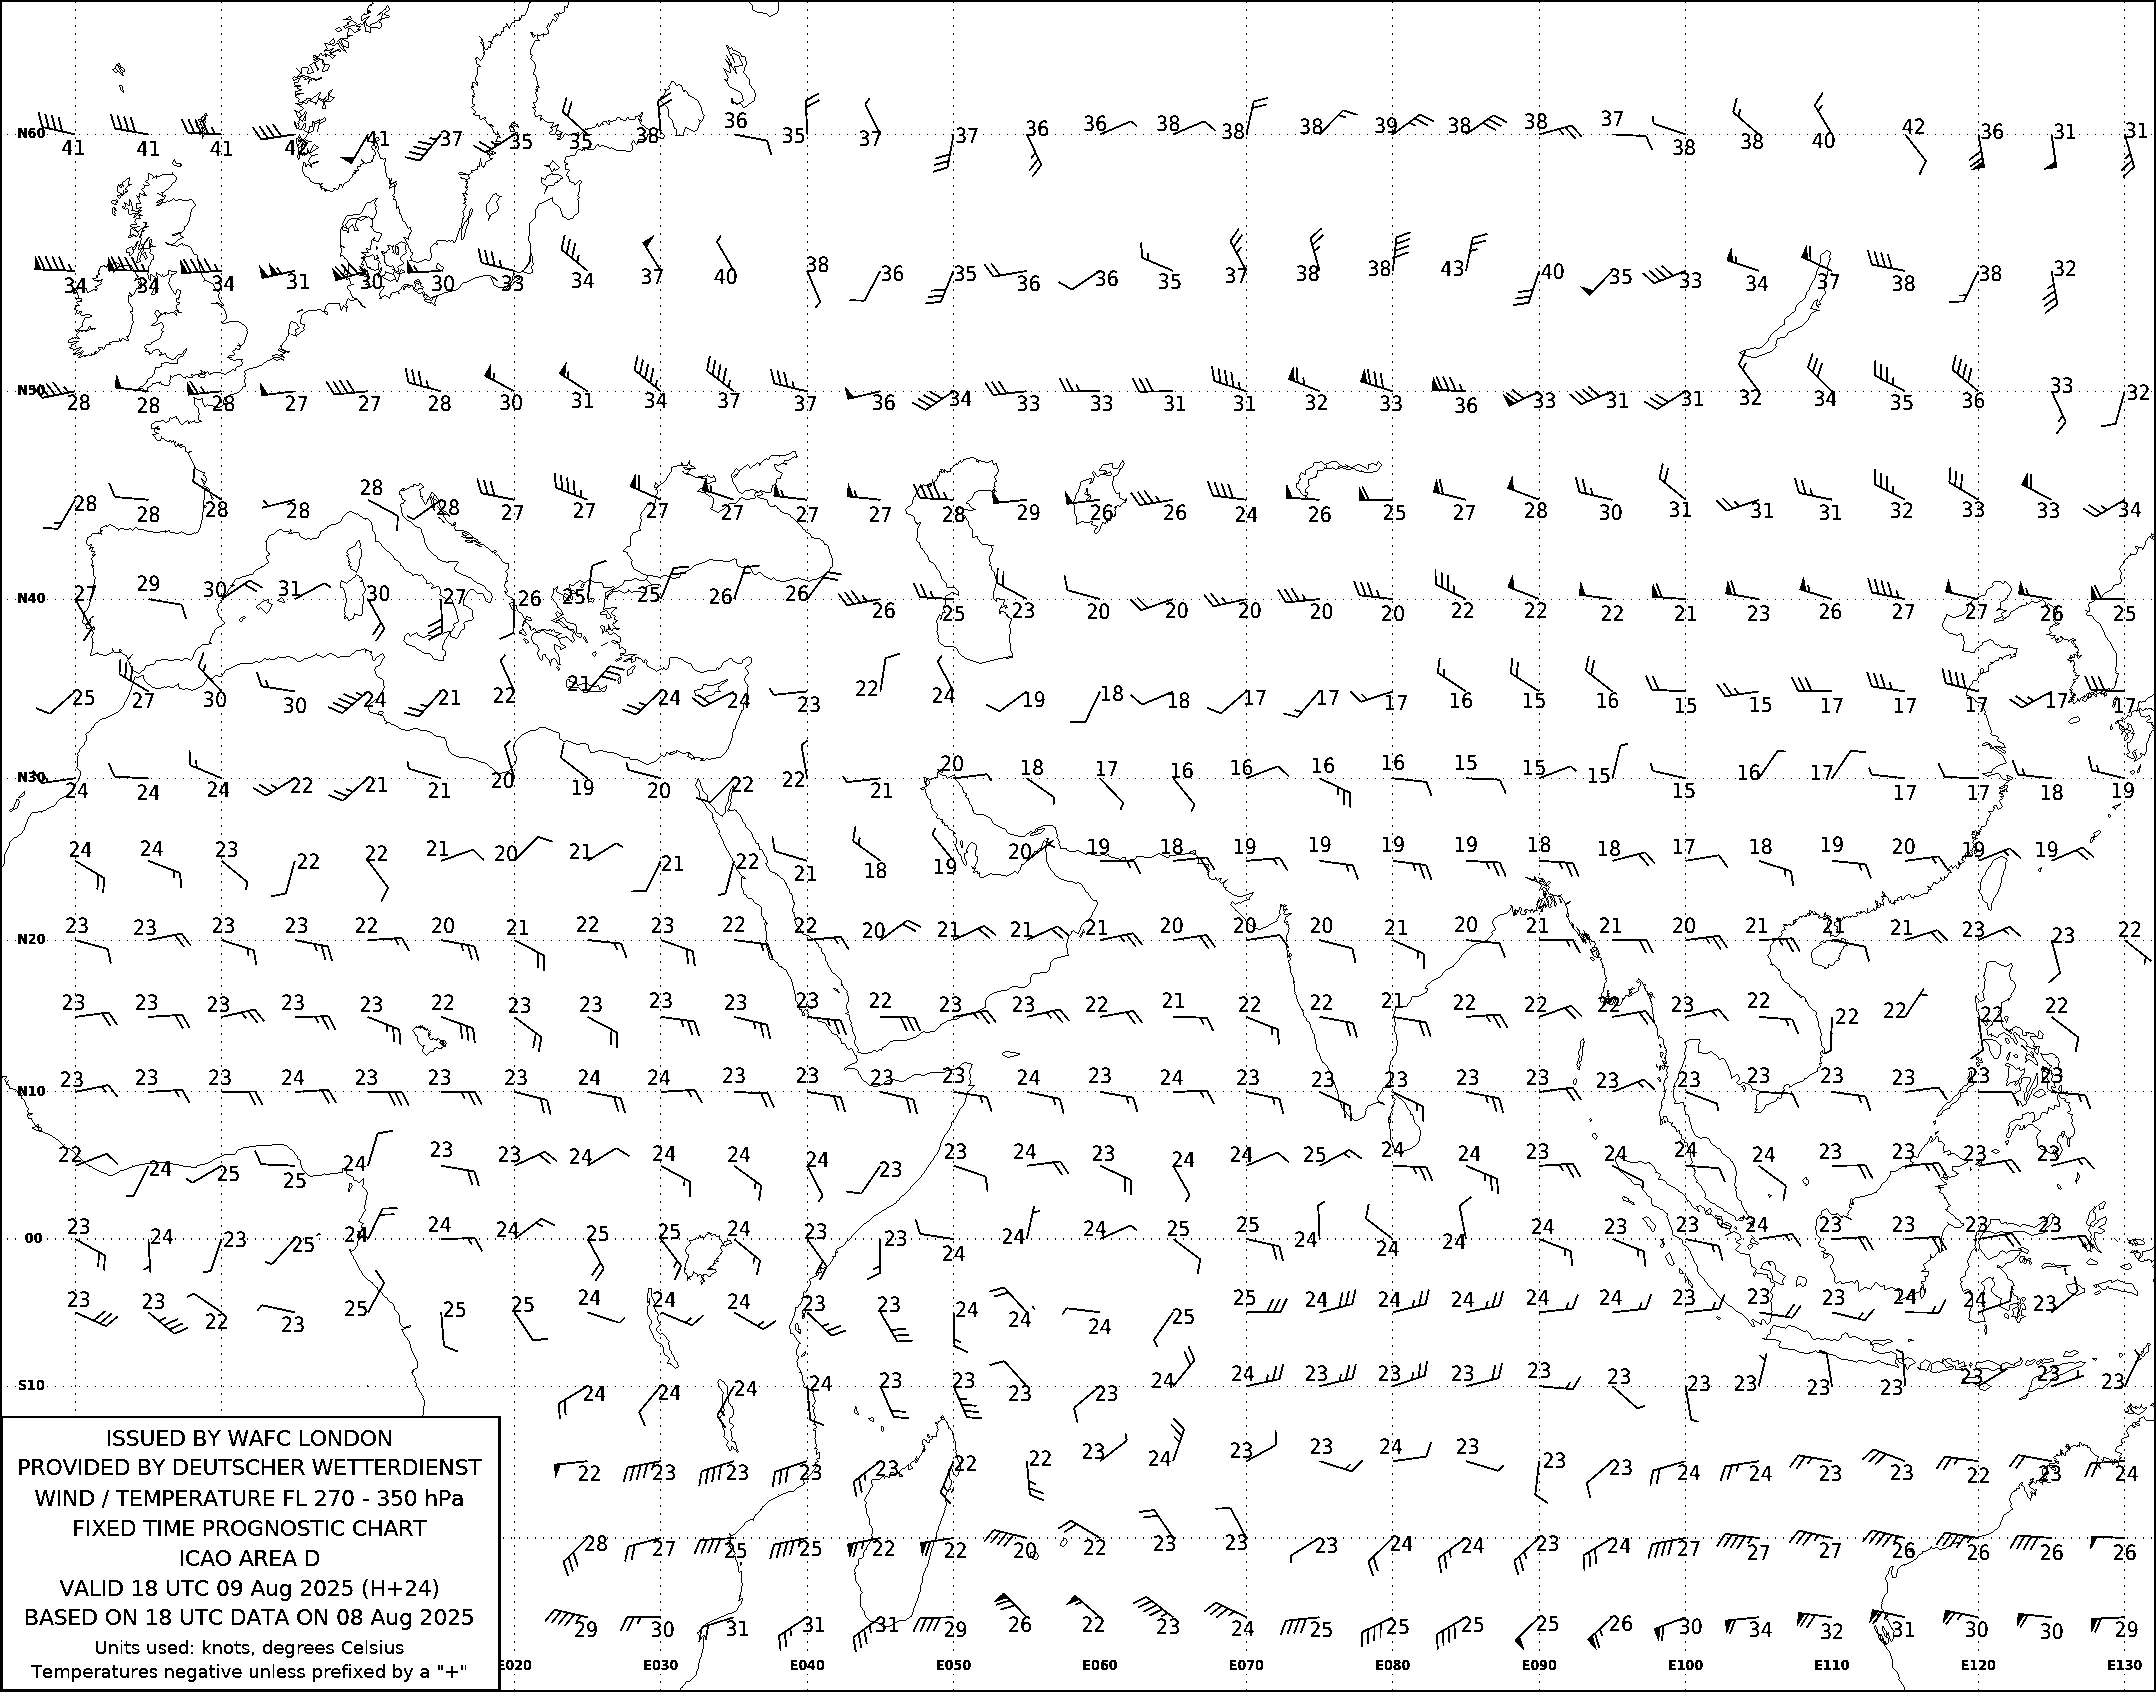 41 41 41 42 41 37 35 35 38 36 35 37 37 36 36 38 38 38 39 38 38 37 38 38 40 42 36 31 31
N60
34 34 34 31 30 30 33 34 37 40 38 36 35 36 36 35 37 38 38 43 40 35 33 34 37 38 38 32
N50
28 28 28 27 27 28 30 31 34 37 37 36 34 33 33 31 31 32 33 36 33 31 31 32 34 35 36 33 32
28 28 28 28 28 28 27 27 27 27 27 27 28 29 26 26 24 26 25 27 28 30 31 31 31 32 33 33 34
N40
27 29 30 31 30 27 26 25 25 26 26 26 25 23 20 20 20 20 20 22 22 22 21 23 26 27 27 26 25
25 27 30 30 24 21 22 21 24 24 23 22 24 19 18 18 17 17 17 16 15 16 15 15 17 17 17 17 17
N30
24 24 24 22 21 21 20 19 20 22 22 21 20 18 17 16 16 16 16 15 15 15 15 16 17 17 17 18 19
24 24 23 22 22 21 20 21 21 22 21 18 19 20 19 18 19 19 19 19 18 18 17 18 19 20 19 19
N20
23 23 23 23 22 20 21 22 23 22 22 20 21 21 21 20 20 20 21 20 21 21 20 21 21 21 23 23 22
23 23 23 23 23 22 23 23 23 23 23 22 23 23 22 21 22 22 21 22 22 22 23 22 22 22 22 22
N10
23 23 23 24 23 23 23 24 24 23 23 23 23 24 23 24 23 23 23 23 23 23 23 23 23 23 23 23
22 24 25 25 24 23 23 24 24 24 24 23 23 24 23 24 24 25 24 24 23 24 24 24 23 23 23 23
00
23 24 23 25 24 24 24 25 25 24 23 23 24 24 24 25 25 24 24 24 24 23 23 24 23 23 23 23
23 23 22 23 25 25 25 24 24 24 23 23 24 24 24 25 25 24 24 24 24 24 23 23 23 24 24 23
S10
24 24 24 24 23 23 23 23 24 24 23 23 23 23 23 23 23 23 23 23 23 23
22 23 23 23 23 22 22 23 24 23 23 24 23 23 23 24 24 23 23 22 23 24
28 27 25 25 22 22 20 22 23 23 23 24 24 23 24 27 27 27 26 26 26 26
29 30 31 31 31 29 26 22 23 24 25 25 25 25 26 30 34 32 31 30 30 29
E020 E030 E040 E050 E060 E070 E080 E090 E100 E110 E120 E130
ISSUED BY WAFC LONDON
PROVIDED BY DEUTSCHER WETTERDIENST
WIND / TEMPERATURE FL 270 - 350 hPa
FIXED TIME PROGNOSTIC CHART
ICAO AREA D
VALID 18 UTC 09 Aug 2025 (H+24)
BASED ON 18 UTC DATA ON 08 Aug 2025
Units used: knots, degrees Celsius
Temperatures negative unless prefixed by a "+"